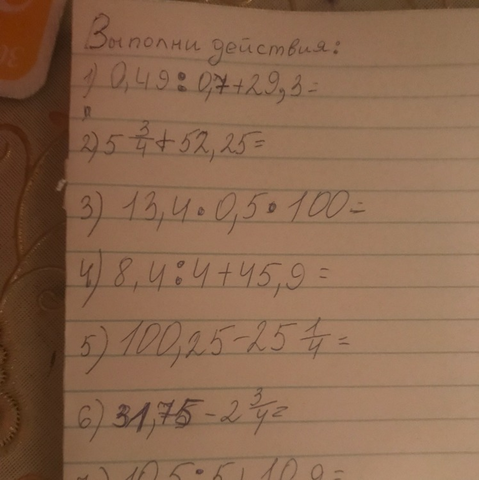 Выполни действия:
1) 0,49 : 0,7 + 29,3 =
2) 5 3/4 + 52,25 =
3) 13,4 • 0,5 • 100 =
4) 8,4 : 4 + 45,9 =
5) 100,25 - 25 1/4 =
6) 31,75 - 2 3/4 =